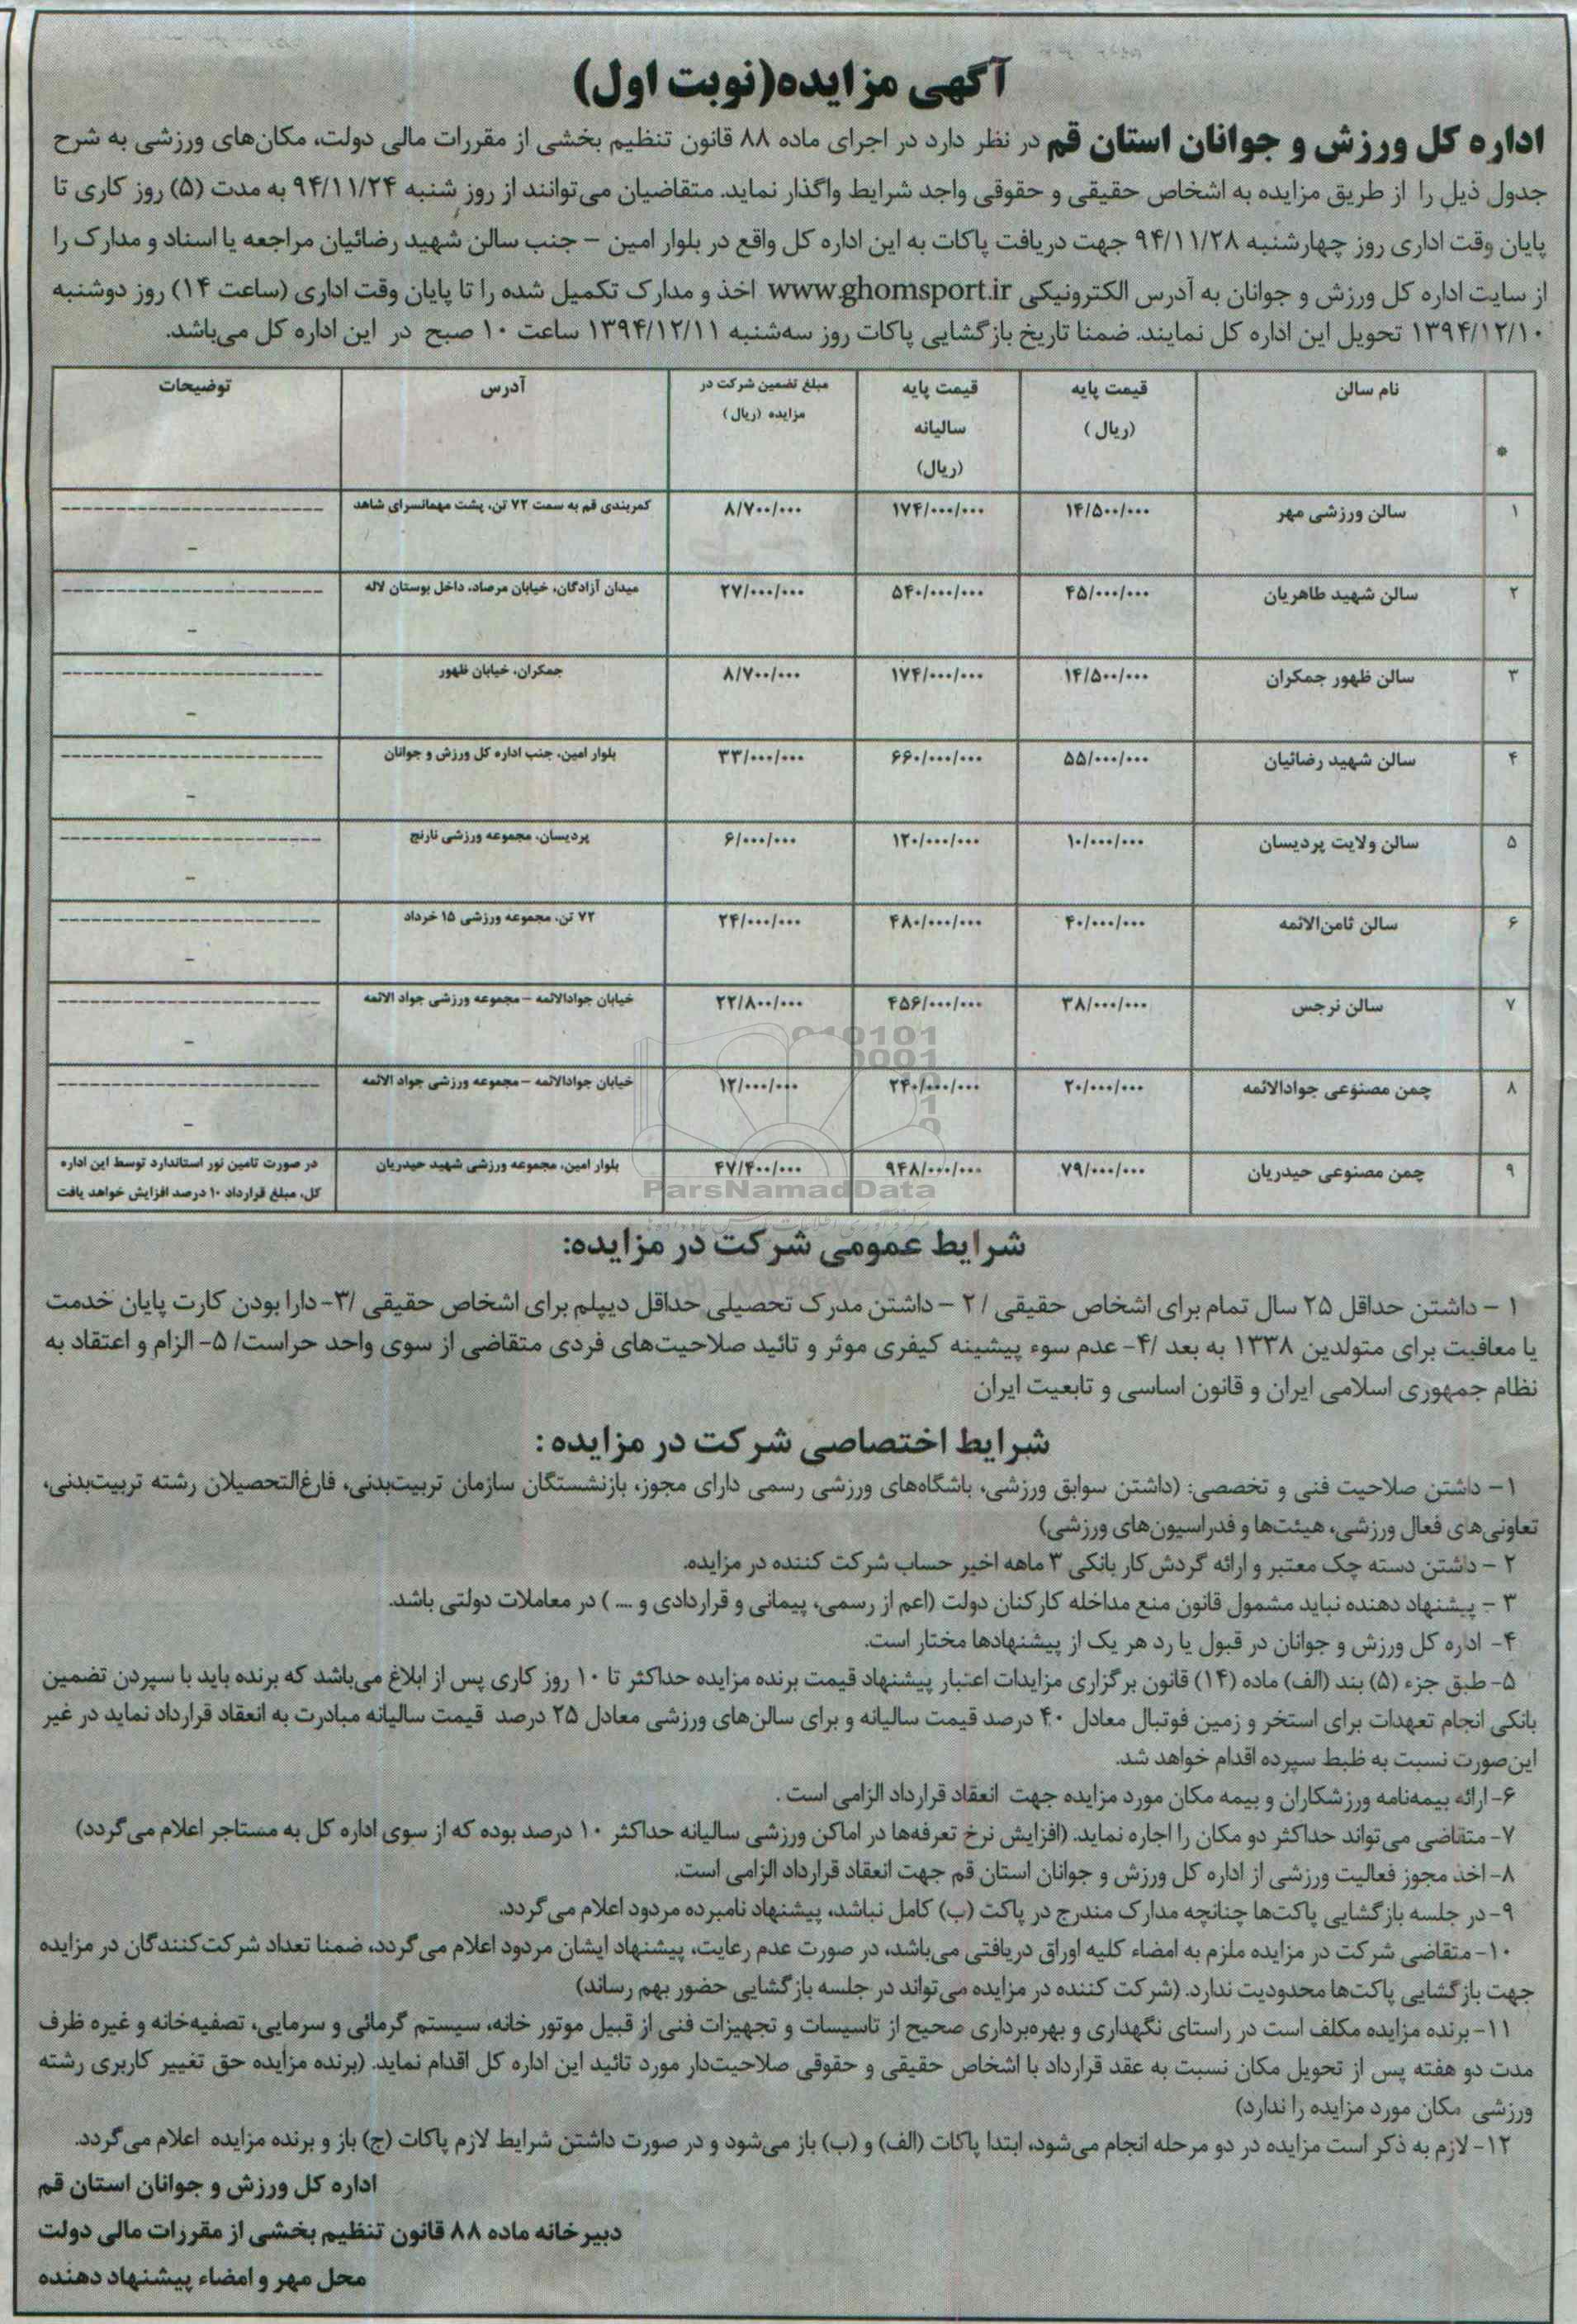 آگهی مزایده(نوبت اول)
اداره کل ورزش و جوانان استان قم در نظر دارد در اجرای ماده ۸۸ قانون تنظیم بخشی از مقررات مالی دولت، مکان‌های ورزشی به شرح
جدول ذیل را از طریق مزایده به اشخاص حقیقی و حقوقی واجد شرایط واگذار نماید. متقاضیان می‌توانند از روز شنبه ۹۴/۱۱/۲۴ به مدت (۵) روز کاری تا
پایان وقت اداری روز چهارشنبه ۹۴/۱۱/۲۸ جهت دریافت پاکات به این اداره کل واقع در بلوار امین – جنب سالن شهید رضائیان مراجعه یا اسناد و مدارک را
از سایت اداره کل ورزش و جوانان به آدرس الکترونیکی www.ghomsport.ir اخذ و مدارک تکمیل شده را تا پایان وقت اداری (ساعت ۱۴) روز دوشنبه
۱۳۹۴/۱۲/۱۰ تحویل این اداره کل نمایند. ضمنا تاریخ بازگشایی پاکات روز سه‌شنبه ۱۳۹۴/۱۲/۱۱ ساعت ۱۰ صبح در این اداره کل می‌باشد.
* نام سالن قیمت پایه (ریال) قیمت پایه سالیانه (ریال) مبلغ تضمین شرکت در مزایده (ریال) آدرس توضیحات
۱ سالن ورزشی مهر ۱۴/۵۰۰/۰۰۰ ۱۷۴/۰۰۰/۰۰۰ ۸/۷۰۰/۰۰۰ کمربندی قم به سمت ۷۲ تن، پشت مهمانسرای شاهد -------------------------
۲ سالن شهید طاهریان ۴۵/۰۰۰/۰۰۰ ۵۴۰/۰۰۰/۰۰۰ ۲۷/۰۰۰/۰۰۰ میدان آزادگان، خیابان مرصاد، داخل بوستان لاله -------------------------
۳ سالن ظهور جمکران ۱۴/۵۰۰/۰۰۰ ۱۷۴/۰۰۰/۰۰۰ ۸/۷۰۰/۰۰۰ جمکران، خیابان ظهور -------------------------
۴ سالن شهید رضائیان ۵۵/۰۰۰/۰۰۰ ۶۶۰/۰۰۰/۰۰۰ ۳۳/۰۰۰/۰۰۰ بلوار امین، جنب اداره کل ورزش و جوانان -------------------------
۵ سالن ولایت پردیسان ۱۰/۰۰۰/۰۰۰ ۱۲۰/۰۰۰/۰۰۰ ۶/۰۰۰/۰۰۰ پردیسان، مجموعه ورزشی نارنج -------------------------
۶ سالن ثامن‌الائمه ۴۰/۰۰۰/۰۰۰ ۴۸۰/۰۰۰/۰۰۰ ۲۴/۰۰۰/۰۰۰ ۷۲ تن، مجموعه ورزشی ۱۵ خرداد -------------------------
۷ سالن نرجس ۳۸/۰۰۰/۰۰۰ ۴۵۶/۰۰۰/۰۰۰ ۲۲/۸۰۰/۰۰۰ خیابان جوادالائمه – مجموعه ورزشی جواد الائمه -------------------------
۸ چمن مصنوعی جوادالائمه ۲۰/۰۰۰/۰۰۰ ۲۴۰/۰۰۰/۰۰۰ ۱۲/۰۰۰/۰۰۰ خیابان جوادالائمه – مجموعه ورزشی جواد الائمه -------------------------
۹ چمن مصنوعی حیدریان ۷۹/۰۰۰/۰۰۰ ۹۴۸/۰۰۰/۰۰۰ ۴۷/۴۰۰/۰۰۰ بلوار امین، مجموعه ورزشی شهید حیدریان در صورت تامین نور استاندارد توسط این اداره
کل، مبلغ قرارداد ۱۰ درصد افزایش خواهد یافت
ParsNamadData
شرایط عمومی شرکت در مزایده:
۱ – داشتن حداقل ۲۵ سال تمام برای اشخاص حقیقی / ۲ – داشتن مدرک تحصیلی حداقل دیپلم برای اشخاص حقیقی /۳- دارا بودن کارت پایان خدمت
یا معافیت برای متولدین ۱۳۳۸ به بعد /۴- عدم سوء پیشینه کیفری موثر و تائید صلاحیت‌های فردی متقاضی از سوی واحد حراست/ ۵- الزام و اعتقاد به
نظام جمهوری اسلامی ایران و قانون اساسی و تابعیت ایران
شرایط اختصاصی شرکت در مزایده:
۱- داشتن صلاحیت فنی و تخصصی: (داشتن سوابق ورزشی، باشگاه‌های ورزشی رسمی دارای مجوز، بازنشستگان سازمان تربیت‌بدنی، فارغ‌التحصیلان رشته تربیت‌بدنی،
تعاونی‌های فعال ورزشی، هیئت‌ها و فدراسیون‌های ورزشی)
۲ – داشتن دسته چک معتبر و ارائه گردش کار بانکی ۳ ماهه اخیر حساب شرکت کننده در مزایده.
۳ – پیشنهاد دهنده نباید مشمول قانون منع مداخله کارکنان دولت (اعم از رسمی، پیمانی و قراردادی و .... ) در معاملات دولتی باشد.
۴- اداره کل ورزش و جوانان در قبول یا رد هر یک از پیشنهادها مختار است.
۵- طبق جزء (۵) بند (الف) ماده (۱۴) قانون برگزاری مزایدات اعتبار پیشنهاد قیمت برنده مزایده حداکثر تا ۱۰ روز کاری پس از ابلاغ می‌باشد که برنده باید با سپردن تضمین
بانکی انجام تعهدات برای استخر و زمین فوتبال معادل ۴۰ درصد قیمت سالیانه و برای سالن‌های ورزشی معادل ۲۵ درصد قیمت سالیانه مبادرت به انعقاد قرارداد نماید در غیر
این‌صورت نسبت به ظبط سپرده اقدام خواهد شد.
۶- ارائه بیمه‌نامه ورزشکاران و بیمه مکان مورد مزایده جهت انعقاد قرارداد الزامی است .
۷- متقاضی می‌تواند حداکثر دو مکان را اجاره نماید. (افزایش نرخ تعرفه‌ها در اماکن ورزشی سالیانه حداکثر ۱۰ درصد بوده که از سوی اداره کل به مستاجر اعلام می‌گردد)
۸- اخذ مجوز فعالیت ورزشی از اداره کل ورزش و جوانان استان قم جهت انعقاد قرارداد الزامی است.
۹- در جلسه بازگشایی پاکت‌ها چنانچه مدارک مندرج در پاکت (ب) کامل نباشد، پیشنهاد نامبرده مردود اعلام می‌گردد.
۱۰- متقاضی شرکت در مزایده ملزم به امضاء کلیه اوراق دریافتی می‌باشد، در صورت عدم رعایت، پیشنهاد ایشان مردود اعلام می‌گردد، ضمنا تعداد شرکت‌کنندگان در مزایده
جهت بازگشایی پاکت‌ها محدودیت ندارد. (شرکت کننده در مزایده می‌تواند در جلسه بازگشایی حضور بهم رساند)
۱۱- برنده مزایده مکلف است در راستای نگهداری و بهره‌برداری صحیح از تاسیسات و تجهیزات فنی از قبیل موتور خانه، سیستم گرمائی و سرمایی، تصفیه‌خانه و غیره ظرف
مدت دو هفته پس از تحویل مکان نسبت به عقد قرارداد با اشخاص حقیقی و حقوقی صلاحیت‌دار مورد تائید این اداره کل اقدام نماید. (برنده مزایده حق تغییر کاربری رشته
ورزشی مکان مورد مزایده را ندارد)
۱۲- لازم به ذکر است مزایده در دو مرحله انجام می‌شود، ابتدا پاکات (الف) و (ب) باز می‌شود و در صورت داشتن شرایط لازم پاکات (ج) باز و برنده مزایده اعلام می‌گردد.
اداره کل ورزش و جوانان استان قم
دبیرخانه ماده ۸۸ قانون تنظیم بخشی از مقررات مالی دولت
محل مهر و امضاء پیشنهاد دهنده